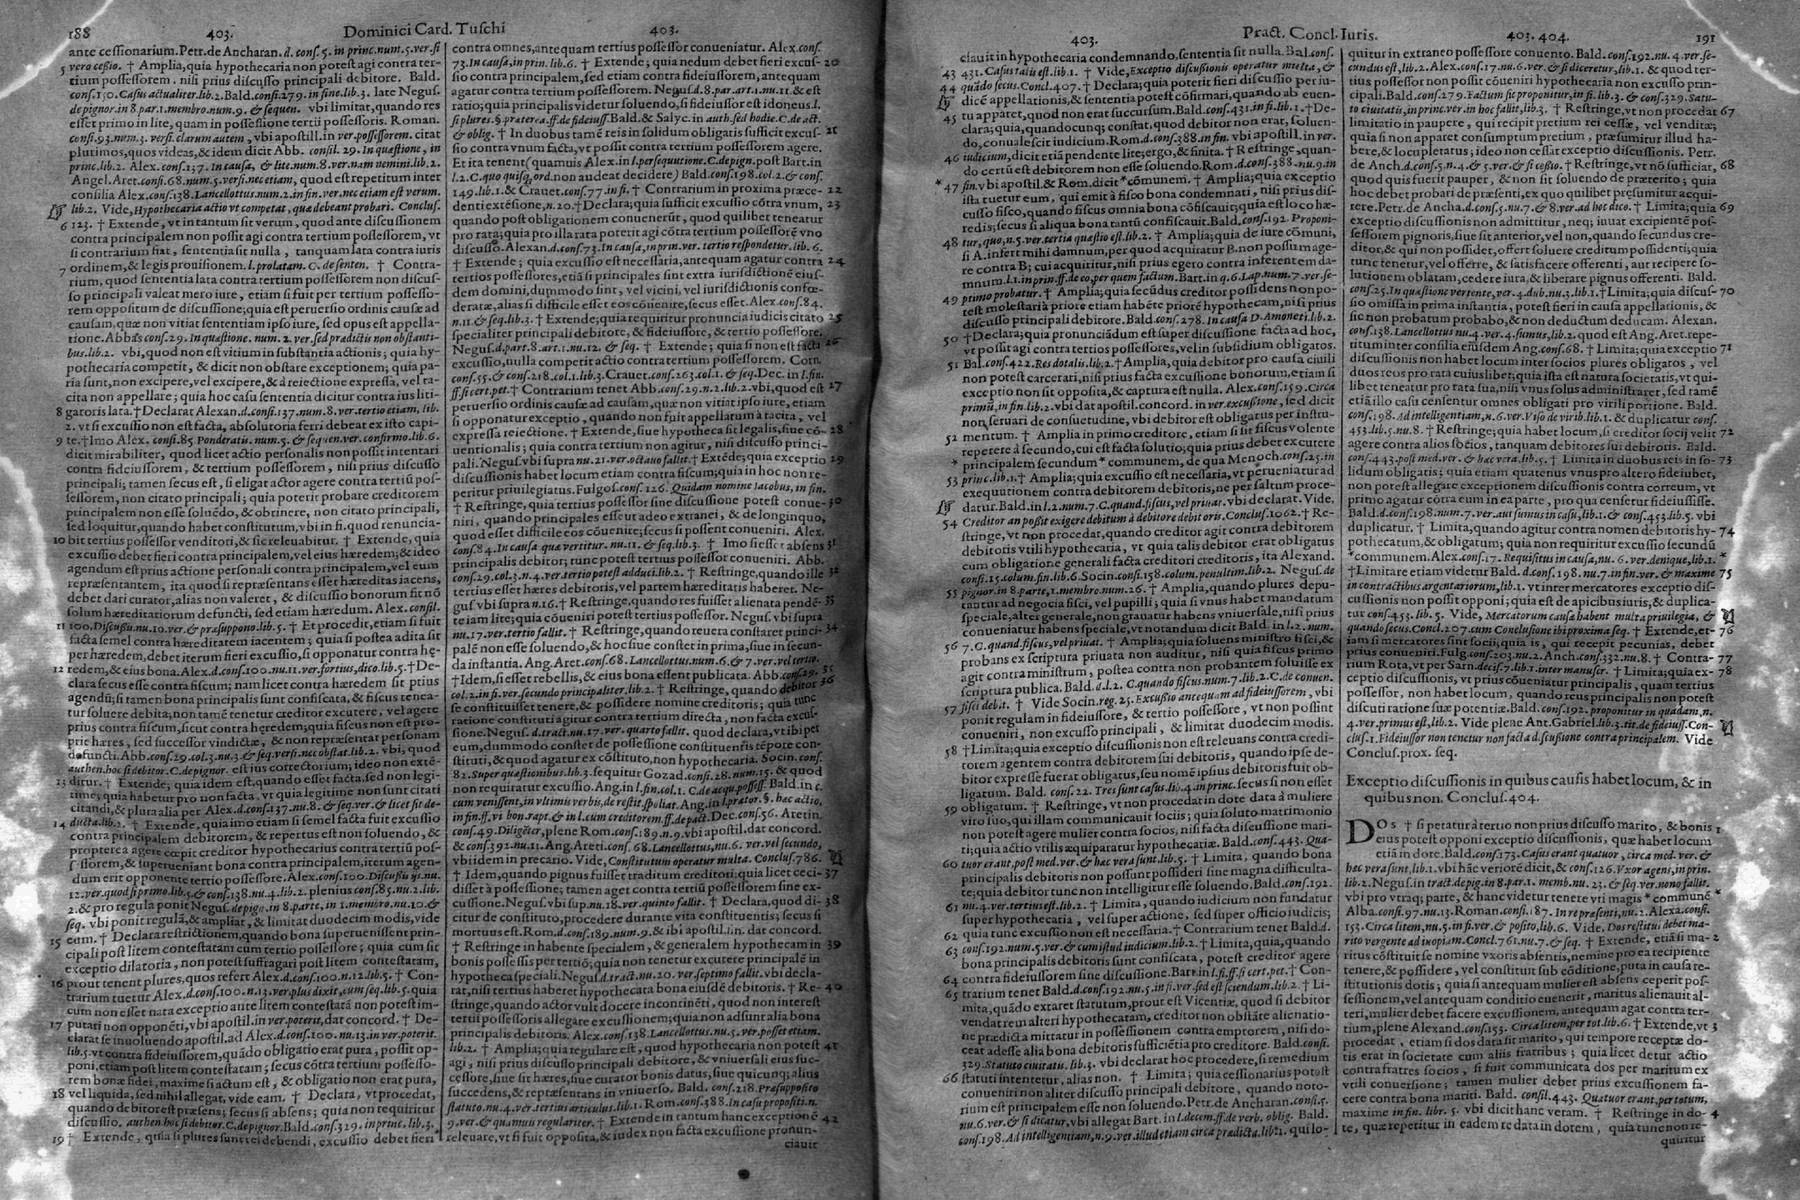 188 403. Dominici Card. Tuschi 403.
ante cessionarium. Petr. de Ancharan. d. cons. 5. in princ. num. 5. ver. si
5 vero cessio. † Amplia, quia hypothecaria non potest agi contra ter-
tium possessorem, nisi prius discusso principali debitore. Bald.
cons. 150. Casus actualiter. lib. 2. Bald. cons. 279. in fine. lib. 3. late Negus.
de pignor. in 8. par. 1. membro. num. 9. & sequen. vbi limitat, quando res
esset primo in lite, quam in possessione tertii possessoris. Roman.
consi. 93. num. 3. versi. clarum autem, vbi apostill. in ver. possessorem. citat
plurimos, quos videas, & idem dicit Abb. consil. 29. In quæstione, in
princ. lib. 2. Alex. cons. 137. In causa, & lite. num. 8. ver. nam nemini. lib. 2.
Angel. Aret. consi. 68. num. 5. versi. nec etiam, quod est repetitum inter
consilia Alex. consi. 138. Lancellottus. num. 2. in fin. ver. nec etiam est verum.
lib. 2. Vide, Hypothecaria actio vt competat, quæ debeant probari. Conclus.
6 123. † Extende, vt in tantum sit verum, quod ante discussionem
contra principalem non possit agi contra tertium possessorem, vt
si contrarium fiat, sententia sit nulla, tanquam lata contra iuris
7 ordinem, & legis prouisionem. l. prolatam. C. de senten. † Contra-
rium, quod sententia lata contra tertium possessorem non discus-
so principali valeat mero iure, etiam si fuit per tertium possesso-
rem oppositum de discussione; quia est peruersio ordinis causæ ad
causam, quæ non vitiat sententiam ipso iure, sed opus est appella-
tione. Abbas cons. 29. In quæstione. num. 2. ver. sed prædictis non obstanti-
bus. lib. 2. vbi, quod non est vitium in substantia actionis; quia hy-
pothecaria competit, & dicit non obstare exceptionem; quia pa-
ria sunt, non excipere, vel excipere, & à reiectione expressa, vel ta-
cita non appellare; quia hoc casu sententia dicitur contra ius liti-
8 gatoris lata. † Declarat Alexan. d. cons. 137. num. 8. ver. tertio etiam, lib.
2. vt si excussio non est facta, absolutoria ferri debeat ex isto capi-
9 te. † Imo Alex. cons. 85. Ponderatis. num. 5. & sequen. ver. confirmo. lib. 6.
dicit mirabiliter, quod licet actio personalis non possit intentari
contra fideiussorem, & tertium possessorem, nisi prius discusso
principali; tamen secus est, si eligat actor agere contra tertiũ pos-
sessorem, non citato principali; quia poterit probare creditorem
principalem non esse soluẽdo, & obtinere, non citato principali,
sed loquitur, quando habet constitutum, vbi in fi. quod renuncia-
10 bit tertius possessor venditori, & sic releuabitur. † Extende, quia
excussio debet fieri contra principalem, vel eius hæredem; & ideo
agendum est prius actione personali contra principalem, vel eum
repræsentantem, ita quod si repræsentans esset hæreditas iacens,
debet dari curator, alias non valeret, & discussio bonorum fit nõ
solum hæreditatiorum defuncti, sed etiam hæredum. Alex. consil.
11 100. Discussũ. nu. 10. ver. & præsuppono. lib. 5. † Et procedit, etiam si fuit
facta semel contra hæreditatem iacentem; quia si postea adita sit
per hæredem, debet iterum fieri excussio, si opponatur contra hę-
12 redem, & eius bona. Alex. d. cons. 100. nu. 11. ver. fortius, dico. lib. 5. † De-
clara secus esse contra fiscum; nam licet contra hæredem sit prius
agendũ; si tamen bona principalis sunt confiscata, & fiscus tenea-
tur soluere debita; non tamẽ tenetur creditor excutere, vel agere
prius contra fiscum, sicut contra hęredem; quia fiscus non est pro-
prie hæres, sed successor vindictæ, & non repræsentat personam
defuncti. Abb. cons. 29. col. 3. nu. 5. & seq. versi. nec obstat. lib. 2. vbi, quod
authen. hoc si debitor. C. de pignor. est ius correctorium; ideo non extẽ-
13 ditur. † Extende; quia idem est, quando esset facta, sed non legi-
time; quia habetur pro non facta, vt quia legitime non sunt citati
citandi, & plura alia per Alex. d. cons. 137. num. 8. & seq. ver. & licet sit de-
14 ducta. lib. 2. † Extende, quia imo etiam si semel facta fuit excussio
contra principalem debitorem, & repertus est non soluendo, &
propterea agere cœpit creditor hypothecarius contra tertiũ pos-
sessorem, & superueniant bona contra principalem, iterum agen-
dum erit opponente tertio possessore. Alex. cons. 100. Discussis ijs. nu.
12. ver. quod si primo. lib. 5. & cons. 138. nu. 4. lib. 2. plenius cons. 85. nu. 2. lib.
2. & pro regula ponit Negus. de pign. in 8. parte, in 1. membro. nu. 10. &
seq. vbi ponit regulã, & ampliat, & limitat duodecim modis, vide
15 eum. † Declara restrictionem, quando bona superuenissent prin-
cipali post litem contestatam cum tertio possessore; quia cum sit
exceptio dilatoria, non potest suffragari post litem contestatam,
prout tenent plures, quos refert Alex. d. cons. 100. n. 12. lib. 5. † Con-
16 trarium tuetur Alex. d. cons. 100. n. 13. ver. plus dixit, cum seq. lib. 5. quia
cum non esset nata exceptio ante litem contestatã non potest im-
putari non opponẽti, vbi apostil. in ver. poterit, dat concord. † De-
17 clarat se inuoluendo apostil. ad Alex. d. cons. 100. nu. 13. in ver. poterit.
lib. 5. vt contra fideiussorem, quãdo obligatio erat pura, possit op-
poni, etiam post litem contestatam; secus cõtra tertium possesso-
rem bonæ fidei, maxime si actum est, & obligatio non erat pura,
18 vel liquida, sed nihil allegat, vide eam. † Declara, vt procedat,
quando debitor est præsens; secus si absens; quia non requiritur
discussio. authen. hoc si debitor. C. de pignor. Bald. cons. 329. in princ. lib. 3.
19 † Extende, quia si plures sunt rei debendi, excussio debet fieri
contra omnes, antequam tertius possessor conueniatur. Alex. cons.
73. In causa, in prin. lib. 6. † Extende; quia nedum debet fieri excus- 20
sio contra principalem, sed etiam contra fideiussorem, antequam
agatur contra tertium possessorem. Negus. d. 8. par. art. 1. nu. 11. & est
ratio; quia principalis videtur soluendo, si fideiussor est idoneus. l.
si plures. §. præterea. ff. de fideiuss. Bald. & Salyc. in auth. sed hodie. C. de act.
& oblig. † In duobus tamẽ reis in solidum obligatis sufficit excus- 21
sio contra vnum facta, vt possit contra tertium possessorem agere.
Et ita tenent (quamuis Alex. in l. persequutione. C. de pign. post Bart. in
l. 2. C. quo quisq; ord. non audeat decidere) Bald. cons. 198. col. 2. & cons.
149. lib. 1. & Crauet. cons. 77. in fi. † Contrarium in proxima præce- 22
denti extẽsione, n. 20. † Declara; quia sufficit excussio cõtra vnum, 23
quando post obligationem conuenerũt, quod quilibet teneatur
pro rata; quia pro illa rata poterit agi cõtra tertiũ possessorẽ vno
discusso. Alexan. d. cons. 73. In causa, in prin. ver. tertio respondetur. lib. 6.
† Extende; quia excussio est necessaria, antequam agatur contra 24
tertios possessores, etiã si principales sint extra iurisdictionẽ eius-
dem domini, dummodo sint, vel vicini, vel iurisdictionis confœ-
deratæ, alias si difficile esset eos cõuenire, secus esset. Alex. cons. 84.
n. 11. & seq. lib. 3. † Extende; quia requiritur pronuncia iudicis citato 25
specialiter principali debitore, & fideiussore, & tertio possessore.
Negus. d. part. 8. art. 1. nu. 12. & seq. † Extende; quia si non est facta 26
excussio, nulla competit actio contra tertium possessorem. Corn.
cons. 55. & cons. 218. col. 1. lib. 3. Crauet. cons. 263. col. 1. & seq. Dec. in l. fin.
ff. si cert. pet. † Contrarium tenet Abb. cons. 29. n. 2. lib. 2. vbi, quod est 27
peruersio ordinis causæ ad causam, quæ non vitiat ipso iure, etiam
si opponatur exceptio, quando non fuit appellatum à tacita, vel
expressa reiectione. † Extende, siue hypotheca sit legalis, siue cõ- 28
uentionalis; quia contra tertium non agitur, nisi discusso princi-
pali. Negus. vbi supra nu. 21. ver. octauo fallit. † Extẽde; quia exceptio 29
discussionis habet locum etiam contra fiscum; quia in hoc non re-
peritur priuilegiatus. Fulgos. cons. 126. Quidam nomine Iacobus, in fin.
† Restringe, quia tertius possessor sine discussione potest conue- 30
niri, quando principales esset adeo extranei, & de longinquo,
quod esset difficile eos cõuenire; secus si possent conueniri. Alex.
cons. 84. In causa quæ vertitur. nu. 11. & seq. lib. 3. † Imo si esset absens 31
principalis debitor; tunc potest tertius possessor conueniri. Abb.
cons. 29. col. 3. n. 4. ver. tertio potest adduci. lib. 2. † Restringe, quando ille 32
tertius esset hæres debitoris, vel partem hæreditatis haberet. Ne-
gus. vbi supra n. 16. † Restringe, quando res fuisset alienata pendẽ- 33
te iam lite; quia cõueniri potest tertius possessor. Negus. vbi supra
nu. 17. ver. tertio fallit. † Restringe, quando reuera constaret princi- 34
palẽ non esse soluendo, & hoc siue constet in prima, siue in secun-
da instantia. Ang. Aret. cons. 68. Lancellottus. num. 6. & 7. ver. vel tertio.
† Idem, si esset rebellis, & eius bona essent publicata. Abb. cons. 29. 35
col. 2. in fi. ver. secundo principaliter. lib. 2. † Restringe, quando debitor 36
se constituisset tenere, & possidere nomine creditoris; quia tunc
ratione constituti agitur contra tertium directa, non facta excus-
sione. Negus. d. tract. nu. 17. ver. quarto fallit. quod declara, vt ibi per
eum, dummodo constet de possessione constituentis tẽpore con-
stituti, & quod agatur ex cõstituto, non hypothecaria. Socin. cons.
82. Super quæstionibus. lib. 3. sequitur Gozad. consi. 28. num. 15. & quod
non requiratur excussio. Ang. in l. fin. col. 1. C. de acqu. posses. Bald. in c.
cum venissent, in vltimis verbis, de restit. spoliat. Ang. in l. prætor. §. hæc actio,
in fin. ff. vi bon. rapt. & in l. cum creditorem. ff. de pact. Dec. cons. 56. Aretin.
cons. 49. Diligẽter, plene Rom. cons. 189. n. 9. vbi apostil. dat concord.
& cons. 392. nu. 11. Ang. Areti. cons. 68. Lancellottus, nu. 6. ver. vel secundo,
vbi idem in precario. Vide, Constitutum operatur multa. Conclus. 786.
† Idem, quando pignus fuisset traditum creditori; quia licet ceci- 37
disset à possessione; tamen aget contra tertium possessorem sine ex-
cussione. Negus. vbi sup. nu. 18. ver. quinto fallit. † Declara, quod di- 38
citur de constituto, procedere durante vita constituentis; secus si
mortuus est. Rom. d. cons. 189. num. 9. & ibi apostil. in. dat concord.
† Restringe in habente specialem, & generalem hypothecam in 39
bonis possessis per tertiũ; quia non tenetur excutere principalẽ in
hypotheca speciali. Negus. d. tract. nu. 20. ver. septimo fallit. vbi decla-
rat, nisi tertius haberet hypothecata bona eiusdẽ debitoris. † Re- 40
stringe, quando actor vult docere incontinẽti, quod non interest
tertii possessoris allegare excussionem; quia non adsunt alia bona
principalis debitoris. Alex. cons. 138. Lancellottus. nu. 3. ver. posset etiam.
lib. 2. † Amplia; quia regulare est, quod hypothecaria non potest 41
agi, nisi prius discusso principali debitore, & vniuersali eius suc-
cessore, siue sit hæres, siue curator bonis datus, siue quicunq; alius
succedens, & repræsentans in vniuerso. Bald. cons. 218. Præsupposito
statuto. nu. 4. ver. tertius articulus. lib. 1. Rom. cons. 388. In casu propositi. n.
9. ver. & quamuis regulariter. † Extende in tantum hanc exceptionẽ 42
releuare, vt si fuit opposita, & iudex non facta excussione pronun-
ciauit
403. Pract. Concl. Iuris. 403. 404. 191
ciauit in hypothecaria condemnando, sententia sit nulla. Bal. cons.
43 431. Casus talis est. lib. 1. † Vide, Exceptio discussionis operatur multa, &
44 quãdo secus. Concl. 407. † Declara; quia poterit fieri discussio per iu-
dicẽ appellationis, & sententia potest cõfirmari, quando ab euen-
tu apparet, quod non erat succursum. Bald. cons. 431. in fi. lib. 1. † De-
45 clara; quia, quandocunq; constat, quod debitor non erat, soluen-
do, conualescit iudicium. Rom. d. cons. 388. in fin. vbi apostill. in ver.
46 iudicium, dicit etiã pendente lite; ergo, & finita. † Restringe, quan-
do certũ est debitorem non esse soluendo. Rom. d. cons. 388. nu. 9. in
47 fin. vbi apostil. & Rom. dicit * cõmunem. † Amplia; quia exceptio
ista tuetur eum, qui emit à fisco bona condemnati, nisi prius dis-
cusso fisco, quando fiscus omnia bona cõfiscauit; quia est loco hæ-
redis; secus si aliqua bona tantũ confiscauit. Bald. cons. 192. Proponi-
48 tur, quo, n. 5. ver. tertia quæstio est. lib. 2. † Amplia; quia de iure cõmuni,
si A. infert mihi damnum, per quod acquiratur B. non possum age-
re contra B; cui acquiritur, nisi prius egero contra inferentem da-
mnum. l. 1. in prin. ff. de eo, per quem factum. Bart. in q. 6. Lap. num. 7. ver. se-
49 primo probatur. † Amplia; quia secũdus creditor possidens non po-
test molestari à priore etiam habẽte priorẽ hypothecam, nisi prius
discusso principali debitore. Bald. cons. 278. In causa D. Amoneti. lib. 2.
50 † Declara; quia pronunciãdum est super discussione facta ad hoc,
vt possit agi contra tertios possessores, vel in subsidium obligatos.
51 Bal. cons. 422. Res dotalis. lib. 2. † Amplia, quia debitor pro causa ciuili
non potest carcerari, nisi prius facta excussione bonorum, etiam si
exceptio non sit opposita, & captura est nulla. Alex. cons. 159. Circa
primũ, in fin. lib. 2. vbi dat apostil. concord. in ver. excussione, sed dicit
non seruari de consuetudine, vbi debitor est obligatus per instru-
52 mentum. † Amplia in primo creditore, etiam si sit fiscus volente
reperere à secundo, cui est facta solutio; quia prius debet excutere
* principalem secundum * communem, de qua Menoch. cons. 25. in
53 princ. lib. 1. † Amplia; quia excussio est necessaria, vt perueniatur ad
exequutionem contra debitorem debitoris, ne per saltum proce-
datur. Bald. in l. 2. num. 7. C. quand. fiscus, vel priuat. vbi declarat. Vide.
54 Creditor an possit exigere debitum à debitore debitoris. Conclus. 1062. † Re-
stringe, vt non procedat, quando creditor agit contra debitorem
debitoris vtili hypothecaria, vt quia talis debitor erat obligatus
cum obligatione generali facta creditori creditoris, ita Alexand.
cons. 15. colum. fin. lib. 6. Socin. cons. 158. colum. penultim. lib. 2. Negus. de
55 pignor. in 8. parte, 1. membro. num. 26. † Amplia, quando plures depu-
tantur ad negocia fisci, vel pupilli; quia si vnus habet mandatum
speciale, alter generale, non grauatur habens vniuersale, nisi prius
conueniatur habens speciale, vt notandum dicit Bald. in l. 2. num.
56 7. C. quand. fiscus, vel priuat. † Amplia; quia soluens ministro fisci, &
probans ex scriptura priuata non auditur, nisi quia fiscus primo
agit contra ministrum, postea contra non probantem soluisse ex
scriptura publica. Bald. d. l. 2. C. quando fiscus. num. 7. lib. 2. C. de conuen.
57 fisci debit. † Vide Socin. reg. 25. Excussio antequam ad fideiussorem, vbi
ponit regulam in fideiussore, & tertio possessore, vt non possint
conueniri, non excusso principali, & limitat duodecim modis.
58 † Limita; quia exceptio discussionis non est releuans contra credi-
torem agentem contra debitorem sui debitoris, quando ipse de-
bitor expresse fuerat obligatus, seu nomẽ ipsius debitoris fuit ob-
ligatum. Bald. cons. 22. Tres sunt casus. lib. 4. in princ. secus si non esset
59 obligatum. † Restringe, vt non procedat in dote data à muliere
viro suo, qui illam communicauit socijs; quia soluto matrimonio
non potest agere mulier contra socios, nisi facta discussione mari-
ti; quia actio vtilis æquiparatur hypothecariæ. Bald. cons. 443. Qua-
60 tuor erant, post med. ver. & hæc vera sunt. lib. 5. † Limita, quando bona
principalis debitoris non possunt possideri sine magna difficulta-
te; quia debitor tunc non intelligitur esse soluendo. Bald. cons. 192.
61 nu. 4. ver. tertius est. lib. 2. † Limita, quando iudicium non fundatur
super hypothecaria, vel super actione, sed super officio iudicis;
62 quia tunc excussio non est necessaria. † Contrarium tenet Bald. d.
63 cons. 192. num. 5. ver. & cum istud iudicium. lib. 2. † Limita, quia, quando
bona principalis debitoris sunt confiscata, potest creditor agere
64 contra fideiussorem sine discussione. Bart. in l. si. ff. si cert. pet. † Con-
65 trarium tenet Bald. d. cons. 192. nu. 5. in fi. ver. sed est sciendum. lib. 2. † Li-
mita, quãdo extaret statutum, prout est Vicentiæ, quod si debitor
vendat rem alteri hypothecatam, creditor non obstãte alienatio-
ne prædicta mittatur in possessionem contra emptorem, nisi do-
ceat adesse alia bona debitoris sufficiẽtia pro creditore. Bald. consi.
329. Statuto ciuitatis. lib. 3. vbi declarat hoc procedere, si remedium
66 statuti intentetur, alias non. † Limita; quia cessionarius potest
conueniri non aliter discusso principali debitore, quando noto-
rium est principalem esse non soluendo. Petr. de Ancharan. cons. 5.
nu. 6. ver. & si dicatur, vbi allegat Bart. in l. decem. ff. de verb. oblig. Bald.
cons. 198. Ad intelligentiam, n. 9. ver. illud etiam circa prædicta. lib. 1. qui lo-
quitur in extraneo possessore conuento. Bald. cons. 192. nu. 4. ver. se-
cundus est. lib. 2. Alex. cons. 17. nu. 6. ver. & si diceretur, lib. 1. & quod ter-
tius possessor non possit cõueniri hypothecaria non discusso prin-
cipali. Bald. cons. 279. Factum sic proponitur, in fi. lib. 3. & cons. 329. Satu-
to ciuitatis, in princ. ver. in hoc fallit, lib. 3. † Restringe, vt non procedat 67
limitatio in paupere, qui recipit pretium rei cessæ, vel vendita;
quia si non apparet consumptum pretium, præsumitur illud ha-
bere, & locupletatus; ideo non cessat exceptio discussionis. Petr.
de Anch. d. cons. 5. n. 4. & 5. ver. & si cessio. † Restringe, vt nõ sufficiat, 68
quod quis fuerit pauper, & non sit soluendo de præterito; quia
hoc debet probari de præsenti, ex quo quilibet præsumitur acqui-
rere. Petr. de Ancha. d. cons. 5. nu. 7. & 8. ver. ad hoc dico. † Limita; quia 69
exceptio discussionis non admittitur, neq; iuuat excipientẽ pos-
sessorem pignoris, siue sit anterior, vel non, quando secundus cre-
ditor, & qui non possidet, offert soluere creditum possidenti; quia
tunc tenetur, vel offerre, & satisfacere offerenti, aut recipere so-
lutionem oblatam, cedere iura, & liberare pignus offerenti. Bald.
cons. 25. In quæstione vertente, ver. 4. dub. nu. 3. lib. 1. † Limita; quia discus- 70
sio omissa in prima instantia, potest fieri in causa appellationis, &
sic non probatum probabo, & non deductum deducam. Alexan.
cons. 138. Lancellottus nu. 4. ver. 4. sumus, lib. 2. quod est Ang. Aret. repe-
titum inter consilia eiusdem Ang. cons. 68. † Limita; quia exceptio 71
discussionis non habet locum inter socios plures obligatos, vel
duos reos pro rata cuiuslibet; quia ista est natura societatis, vt qui-
libet teneatur pro rata sua, nisi vnus solus administraret, sed tamẽ
etiã illo casu censentur omnes obligati pro virili portione. Bald.
cons. 198. Ad intelligentiam, n. 6. ver. Viso de virib. lib. 1. & duplicatur cons.
453. lib. 5. nu. 8. † Restringe; quia habet locum, si creditor socij velit 72
agere contra alios socios, tanquam debitores sui debitoris. Bald.
cons. 443. post med. ver. & hæc vera, lib. 5. † Limita in duobus reis in so- 73
lidum obligatis; quia etiam quatenus vnus pro altero fideiubet,
non potest allegare exceptionem discussionis contra correum, vt
primo agatur cõtra eum in ea parte, pro qua censetur fideiussisse.
Bald. d. cons. 198. num. 7. ver. aut sumus in casu, lib. 1. & cons. 453. lib. 5. vbi
duplicatur. † Limita, quando agitur contra nomen debitoris hy- 74
pothecatum, & obligatum; quia non requiritur excussio secundũ
* communem. Alex. cons. 17. Requisitus in causa, nu. 6. ver. denique, lib. 1.
† Limitare etiam videtur Bald. d. cons. 198. nu. 7. in fin. ver. & maxime 75
in contractibus argentariorum, lib. 1. vt inter mercatores exceptio dis-
cussionis non possit opponi; quia est de apicibus iuris, & duplica-
tur cons. 453. lib. 5. Vide, Mercatorum causa habent multa priuilegia, &
quando secus. Concl. 207. cum Conclusione ibi proxima seq. † Extende, et- 76
iam si mercatores sint socii; quia is, qui recepit pecunias, debet
prius conueniri. Fulg. cons. 203. nu. 2. Anch. cons. 332. nu. 8. † Contra- 77
rium Rota, vt per Sarn. decis. 7. lib. 1. inter manuscr. † Limita; quia ex- 78
ceptio discussionis, vt prius cõueniatur principalis, quam tertius
possessor, non habet locum, quando reus principalis non potest
discuti ratione suæ potentiæ. Bald. cons. 192. proponitur in quadam, n.
4. ver. primus est, lib. 2. Vide plene Ant. Gabriel. lib. 3. tit. de fideiuss. Con-
clus. 1. Fideiussor non tenetur non facta discussione contra principalem. Vide
Conclus. prox. seq.
Exceptio discussionis in quibus causis habet locum, & in
quibus non. Conclus. 404.
DOs † si petatur à tertio non prius discusso marito, & bonis 1
eius potest opponi exceptio discussionis, quæ habet locum
etiã in dote. Bald. cons. 173. Casus erant quatuor, circa med. ver. &
hæc vera sunt, lib. 1. vbi hãc veriorẽ dicit, & cons. 126. Vxor agens, in prin.
lib. 2. Negus. in tract. de pig. in 8. par. 1. memb. nu. 23. & seq. ver. nono fallit.
vbi pro vtraq; parte, & hanc videtur tenere vti magis * communẽ *
Alba. cons. 97. nu. 13. Roman. consi. 187. In repræsenti, nu. 2. Alexa. consi.
153. Circa litem, nu. 5. in fi. ver. & posito, lib. 6. Vide, Dos restitui debet ma-
rito vergente ad inopiam. Concl. 761. nu. 7. & seq. † Extende, etiã si ma- 2
ritus cõstituit se nomine vxoris absentis, nemine pro ea recipiente
tenere, & possidere, vel constituit sub cõditione, puta in causa re-
stitutionis dotis; quia si antequam mulier est absens ceperit pos-
sessionem, vel antequam conditio euenerit, maritus alienauit al-
teri, mulier debet facere excussionem, antequam agat contra ter-
tium, plene Alexand. cons. 153. Circa litem, per tot. lib. 6. † Extende, vt 3
procedat, etiam si dos data sit marito, qui tempore receptæ do-
tis erat in societate cum aliis fratribus; quia licet detur actio
contra fratres socios, si fuit communicata dos per maritum ex
vtili conuersione; tamen mulier debet prius excussionem fa-
cere contra bona mariti. Bald. consil. 443. Quatuor erant, per totum,
maxime in fin. libr. 5. vbi dicit hanc veram. † Restringe in do- 4
te, quæ repetitur in eadem re data in dotem, quia tunc non re-
quiritur